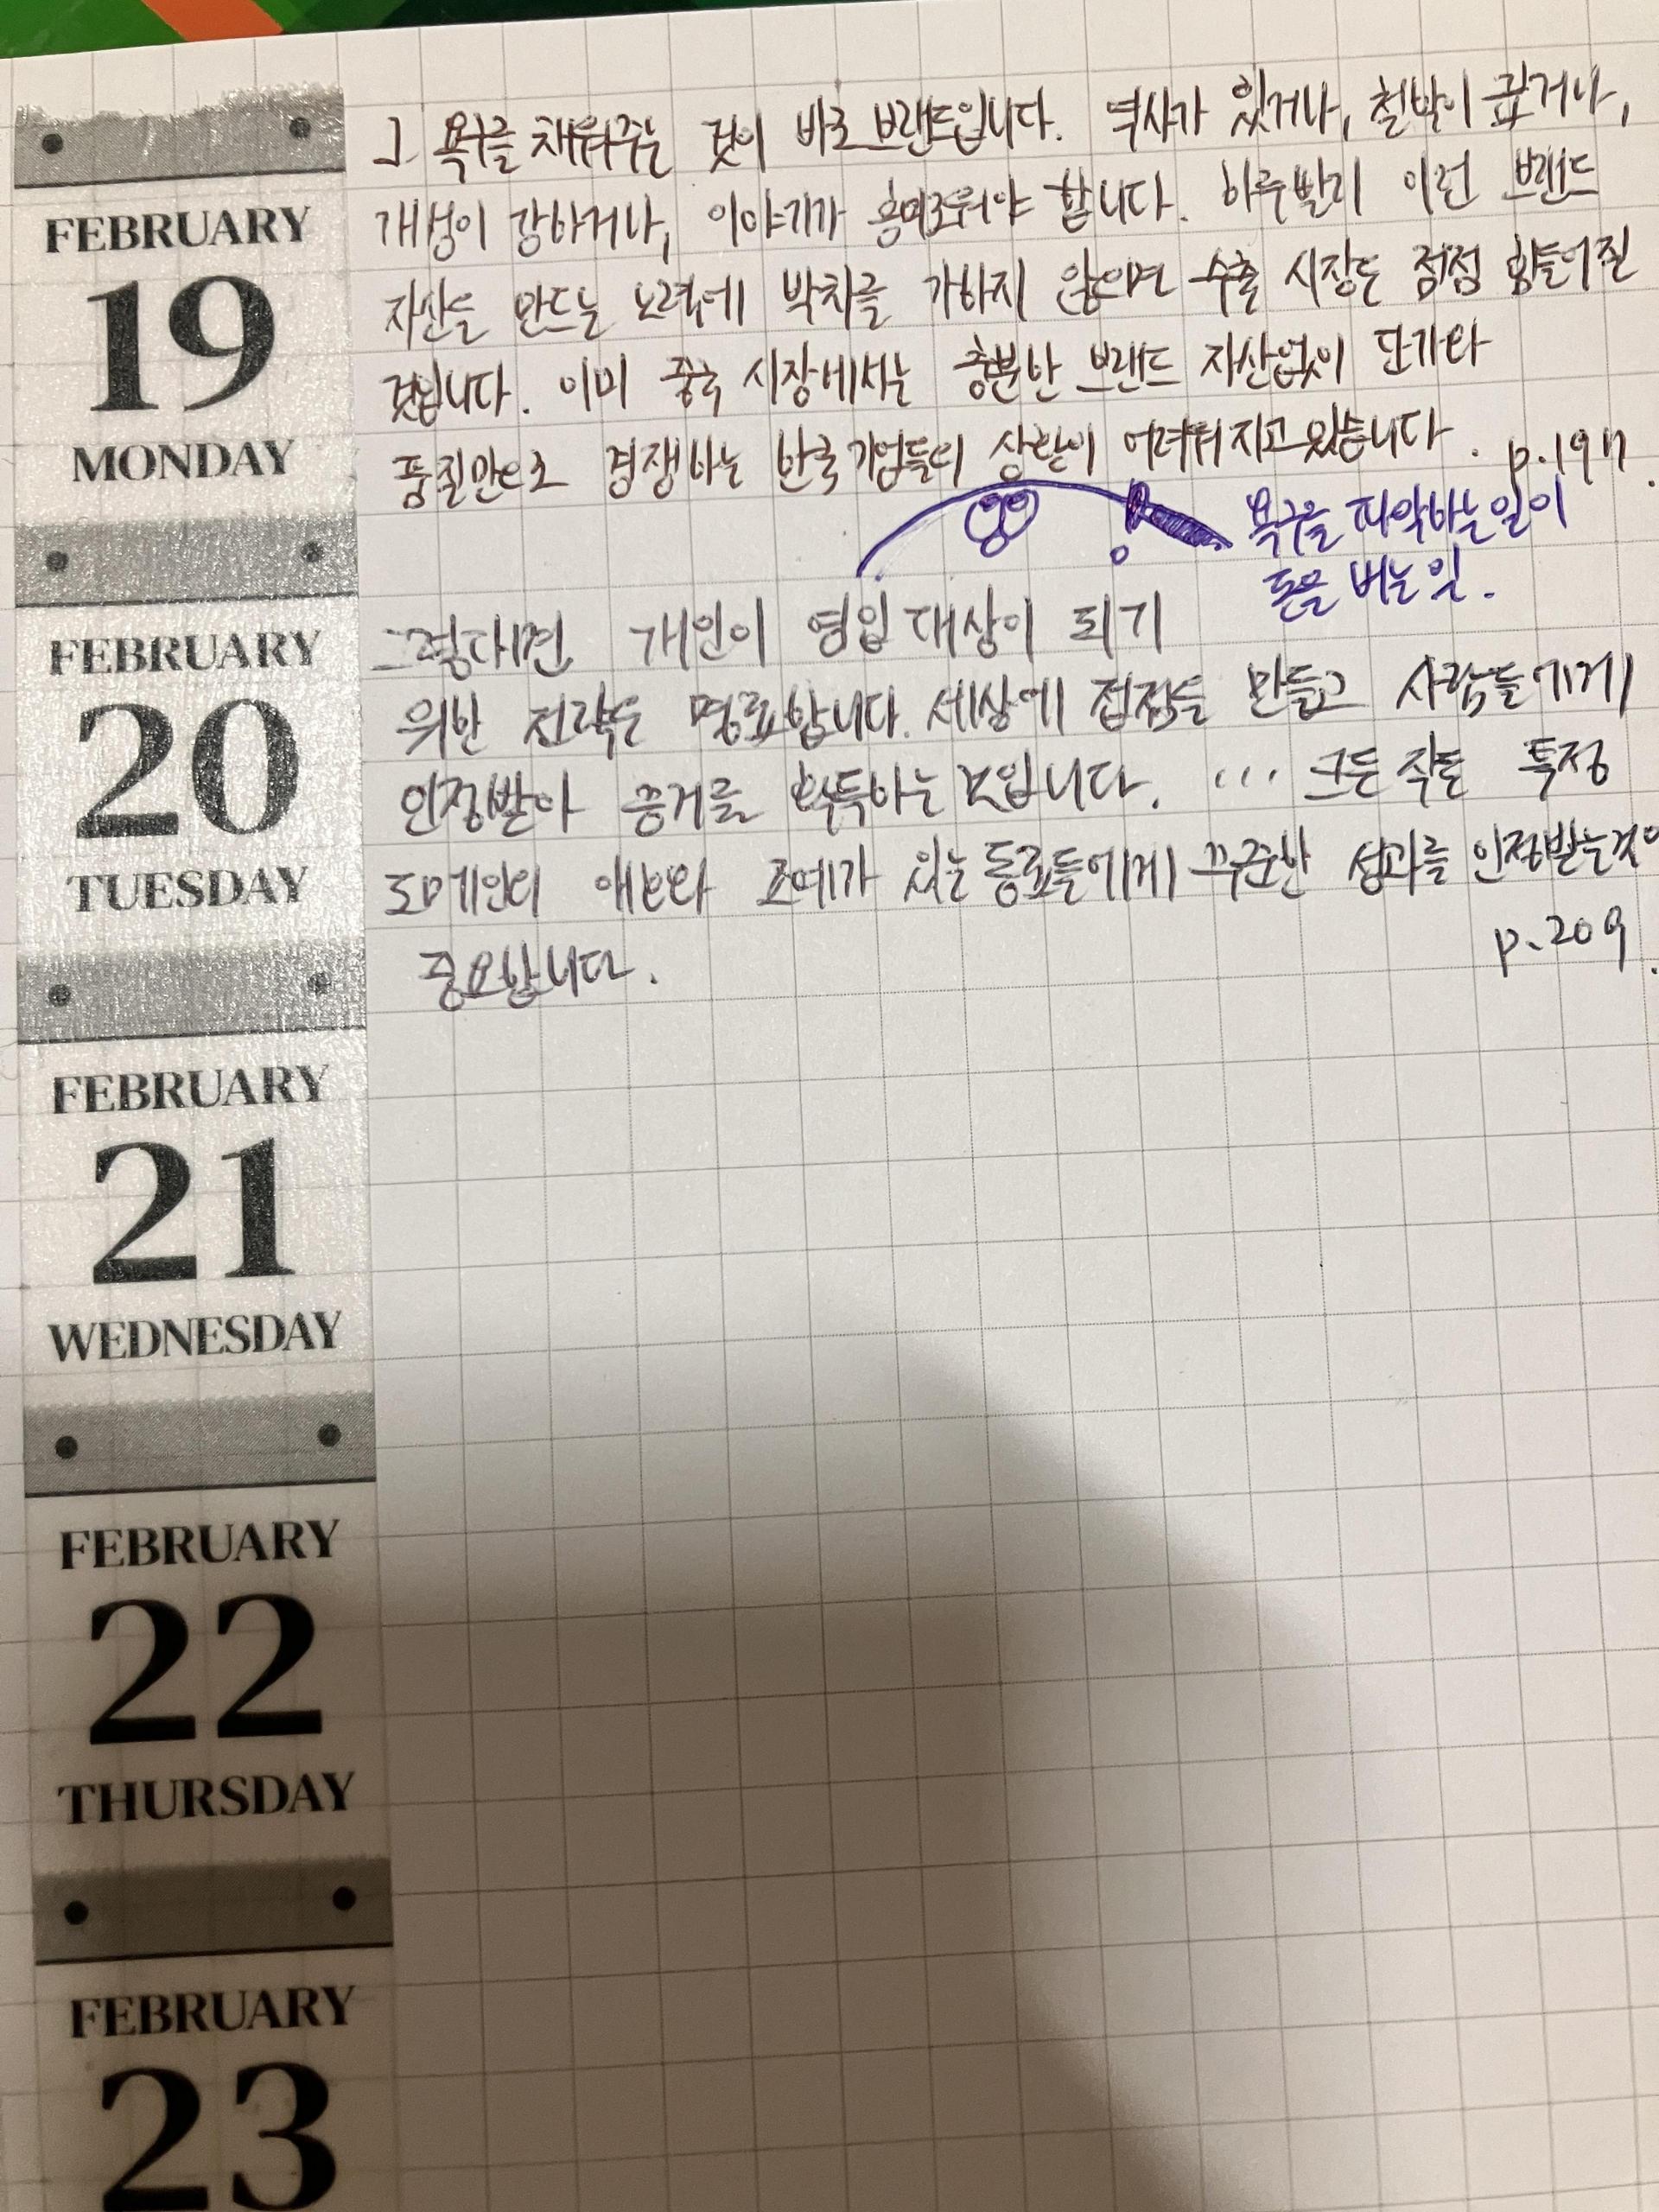 그 욕구를 채워주는 것이 바로 브랜드입니다. 역사가 있거나, 철학이 깊거나,
개성이 강하거나, 이야기가 흥미로워야 합니다. 하루빨리 이런 브랜드
자산을 만드는 노력에 박차를 가하지 않으면 수출 시장은 점점 힘들어질
것입니다. 이미 중국 시장에서는 충분한 브랜드 자산없이 단가와
품질만으로 경쟁하는 한국 기업들의 상황이 어려워지고 있습니다. p.197.
욕구를 파악하는 일이
돈을 버는 일.
그렇다면 개인이 영입 대상이 되기
위한 전략은 명료합니다. 세상에 접점을 만들고 사람들에게
인정받아 증거를 획득하는 것입니다. ... 크든 작든 특정
도메인의 애호와 조예가 있는 동료들에게 꾸준한 성과를 인정받는것이
중요합니다. p.209.
FEBRUARY
19
MONDAY
FEBRUARY
20
TUESDAY
FEBRUARY
21
WEDNESDAY
FEBRUARY
22
THURSDAY
FEBRUARY
23